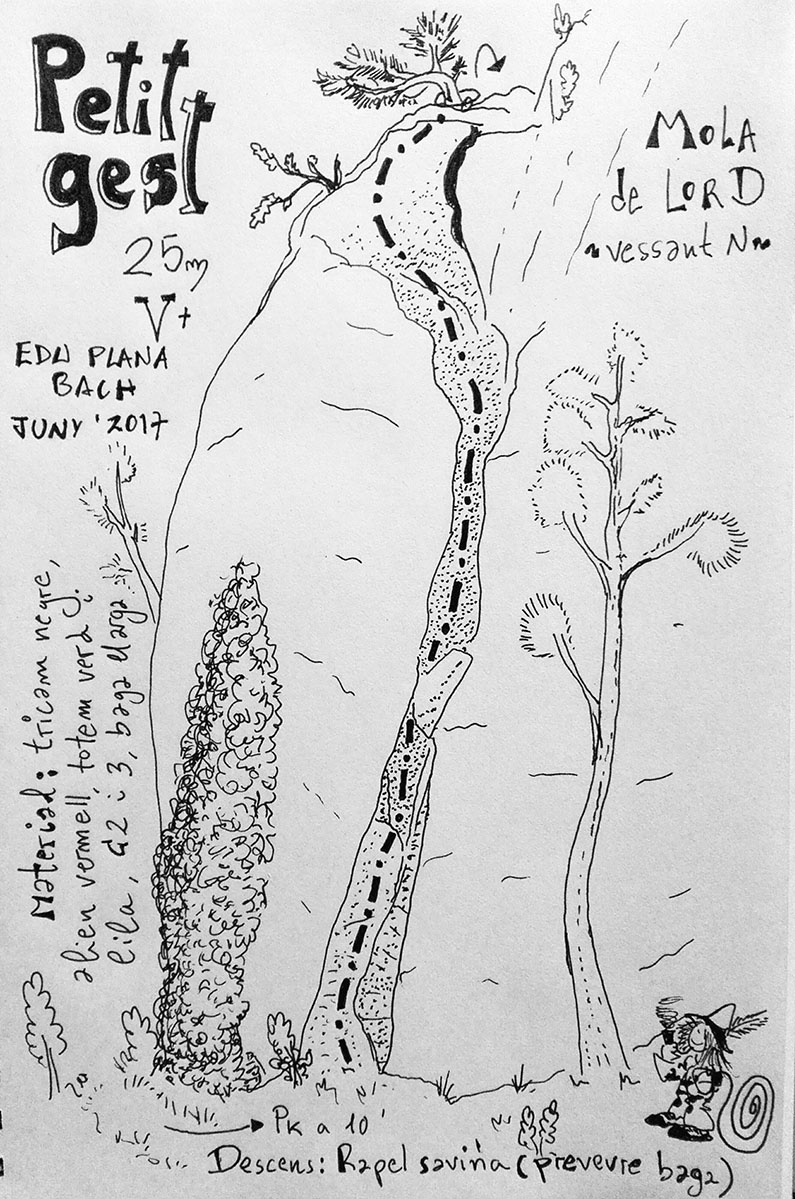 Petit
gest
25m
V+
EDU PLANA
BACH
JUNY '2017
MOLA
de LORD
~vessant N~
Material: tricam negre,
alien vermell, totem verd i
lila, C2 i 3, baga llarga
Pk a 10'
Descens: Rapel savina (prevevre baga)